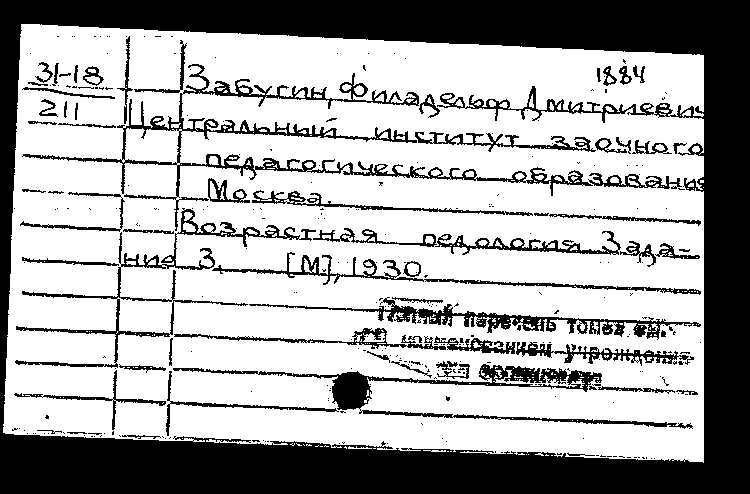 1884
31-18
211
Забугин, Филадельф Дмитриевич
Центральный институт заочного
педагогического образования
Москва.
Возрастная педология. Зада-
ние 3. [М], 1930.
Полный перечень томов см.
наименованием учреждения